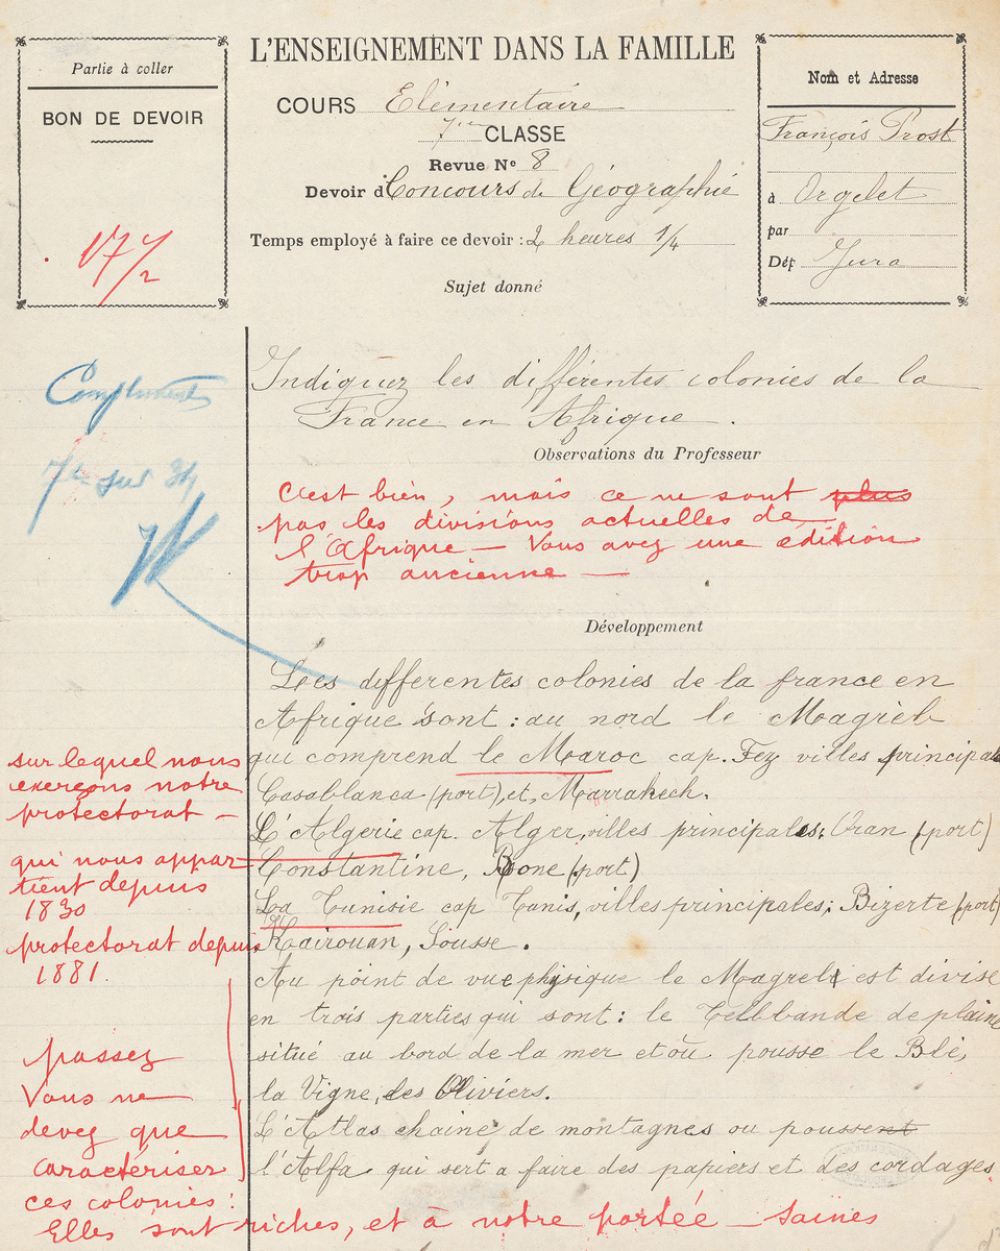 Partie à coller
BON DE DEVOIR
17 1/2
L'ENSEIGNEMENT DANS LA FAMILLE
COURS Elémentaire
7ie CLASSE
Revue No 8
Devoir d Concours de Géographie
Temps employé à faire ce devoir : 2 heures 1/4
Sujet donné
Nom et Adresse
François Prost
à Orgelet
par
Dép Jura
Compliments
7e sur 34
Indiquez les différentes colonies de la
France en Afrique.
Observations du Professeur
C'est bien, mais ce ne sont plus
pas les divisions actuelles de
l'Afrique — Vous avez une édition
trop ancienne —
Développement
Les differentes colonies de la france en
Afrique sont : au nord le Magrèb
qui comprend le Maroc cap. Fez villes principales
Casablanca (port), et, Marrakech.
L'Algerie cap. Alger, villes principales; Oran (port)
Constantine, Bone (port)
La Tunisie cap Tunis, villes principales; Bizerte (port)
Kairouan, Sousse.
Au point de vue physique le Magreb est divisé
en trois parties qui sont : le Tell bande de plaine
situé au bord de la mer et où pousse le Blé,
la Vigne, des Oliviers.
L'Atlas chaine de montagnes ou poussent
l'Alfa qui sert a faire des papiers et des cordages.
sur lequel nous
exerçons notre
protectorat —
qui nous appar-
tient depuis
1830
protectorat depuis
1881.
passez
Vous ne
devez que
caractériser
ces colonies :
Elles sont riches, et à notre portée — saines